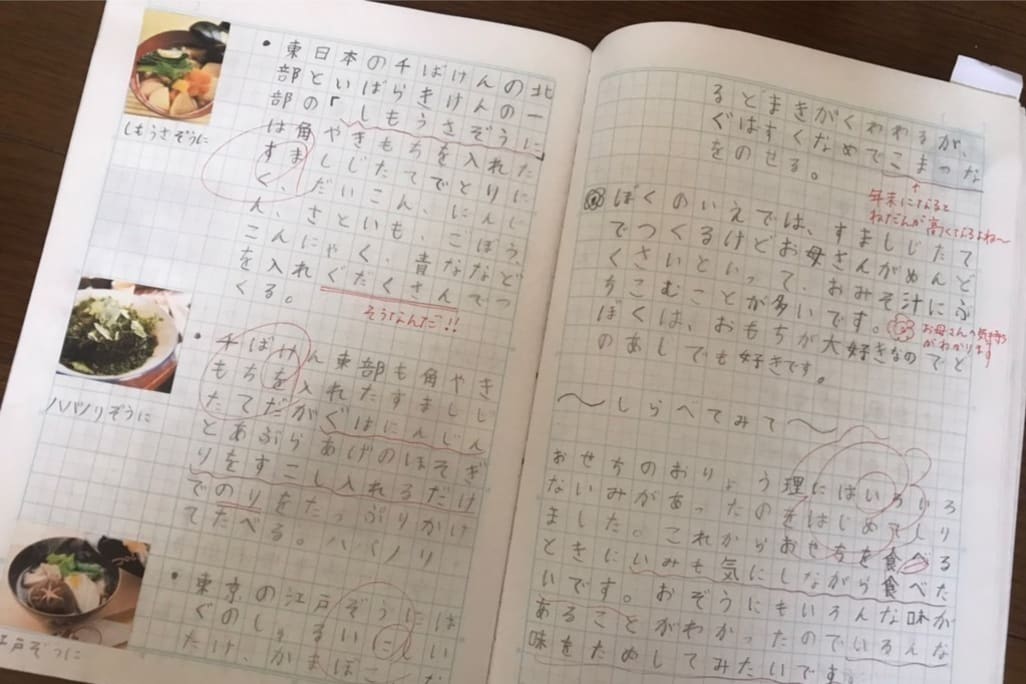 しもうさぞうに
・東日本の千ばけんの北
部といばらきけんの一
部の「しもうさぞうに」
は角やきもちを入れた
すましじたてでとりに
く、だいこん、にんじ
ん、さといも、ごぼう、
こんにゃく、青ななど
を入れぐだくさんでつ
くる。
そうなんだ!!
ハバノリぞうに
・千ばけん東部も角やき
もちを入れたすましじ
たてだがぐはにんじん
とあぶらあげのほそぎ
りをすこし入れるだけ
でのりをたっぷりかけ
てたべる。ハバノリ
江戸ぞうに
・東京の江戸ぞうには
ぐのしゅるいにしい
たけ、かまぼこ、な
るとまきがくわわるが、
ぐはすくなめでこまつな
をのせる。
年末になると
ねだんが高くなるよね〜
ぼくのいえでは、すましじたて
でつくるけどお母さんがめんど
くさいといって、おみそ汁にぶ
ちこむことが多いです。
お母さんの気持ち
がわかります
ぼくは、おもちが大好きなのでど
のあじでも好きです。
〜しらべてみて〜
おせちのおりょう理にはいろいろ
ないみがあったのをはじめてしり
ました。これからおせちを食べる
ときにいみも気にしながら食べた
いです。おぞうにもいろんな味が
あることがわかったのでいろんな
味をためしてみたいです